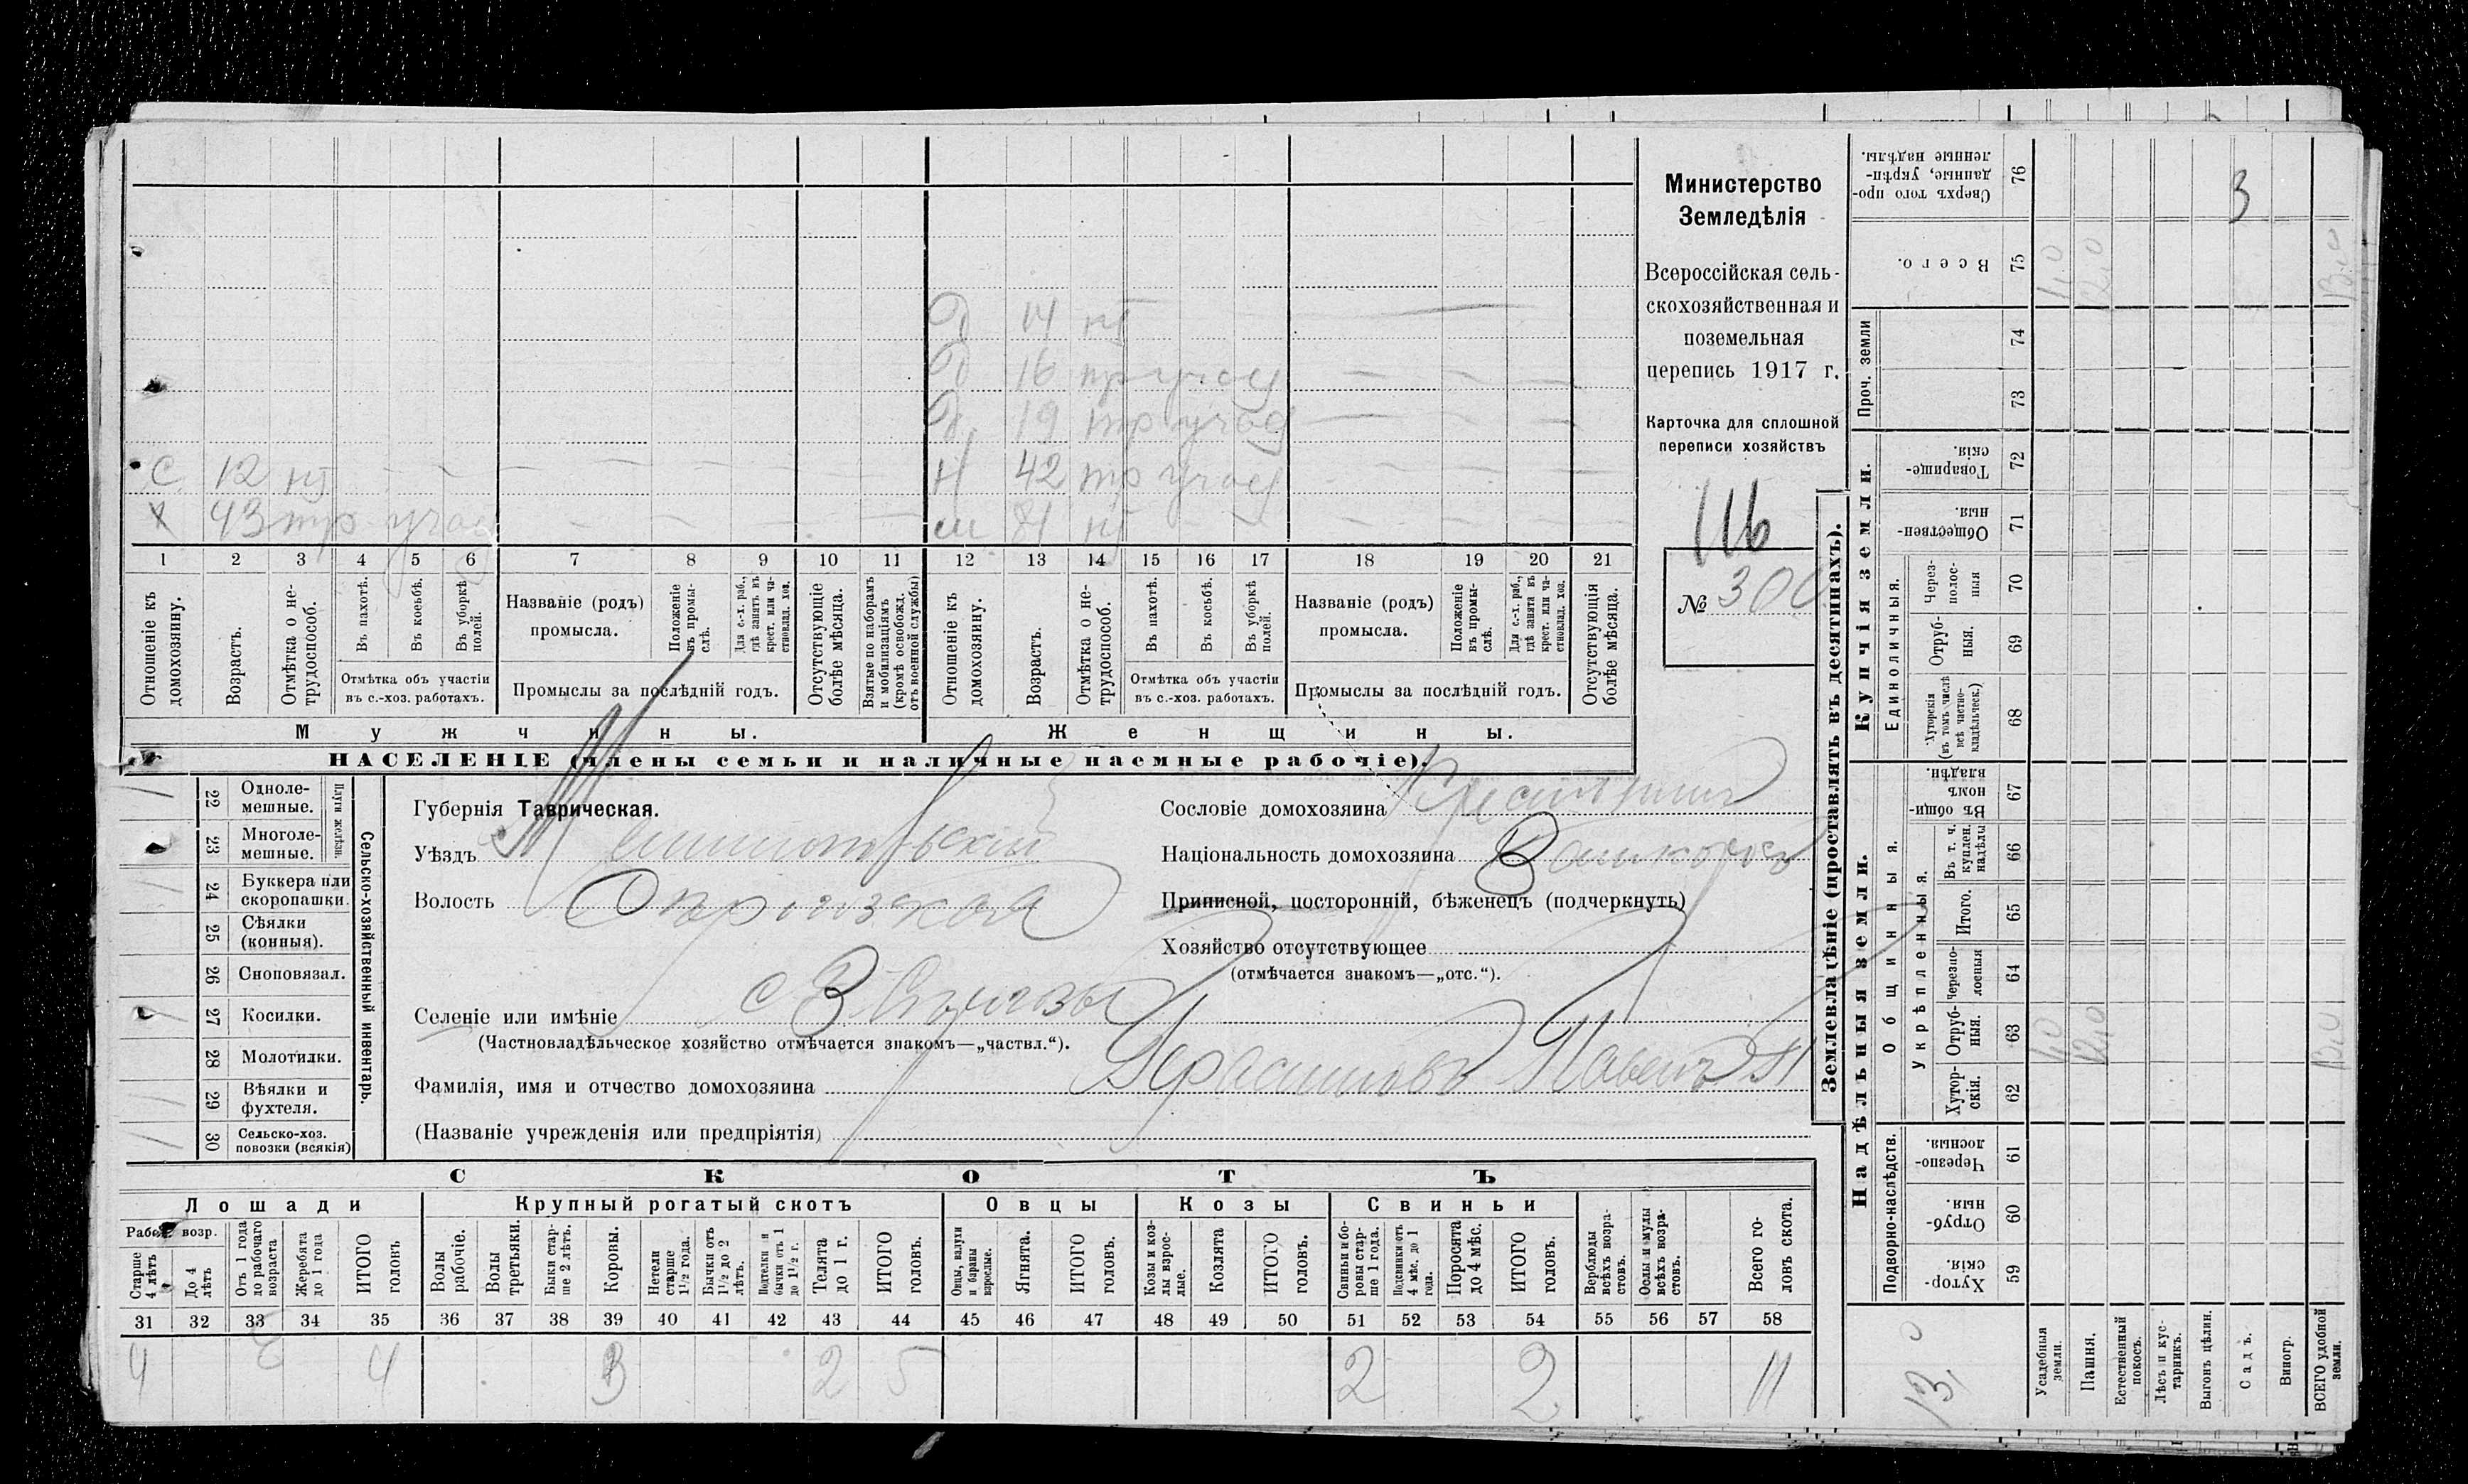 С 12 нт
Х 43 тр участ
Д 14 нт
Д 16 тр участ
Д 19 тр участ
Н 42 тр участ
м 81 нт
1 2 3 4 5 6 7 8 9 10 11 12 13 14 15 16 17 18 19 20 21
Отношеніе къ домохозяину.
Возрастъ.
Отмѣтка о не-трудоспособ.
Въ пахотѣ.
Въ косьбѣ.
Въ уборкѣ полей.
Отмѣтка объ участіи въ с.-хоз. работахъ.
Названіе (родъ) промысла.
Положеніе въ промы-слѣ.
Для с.-х. раб., гдѣ занятъ въ крест. или ча-стновлад. хоз.
Промыслы за послѣдній годъ.
Отсутствующіе болѣе мѣсяца.
Взятые по наборамъ и мобилизаціямъ (кромѣ освобожд. отъ военной службы)
Отношеніе къ домохозяину.
Возрастъ.
Отмѣтка о не-трудоспособ.
Въ пахотѣ.
Въ косьбѣ.
Въ уборкѣ полей.
Отмѣтка объ участіи въ с.-хоз. работахъ.
Названіе (родъ) промысла.
Положеніе въ промы-слѣ.
Для с.-х. раб., гдѣ занята въ крест. или ча-стновлад. хоз.
Промыслы за послѣдній годъ.
Отсутствующія болѣе мѣсяца.
Мужчины.
Женщины.
НАСЕЛЕНІЕ (члены семьи и наличные наемные рабочіе).
Министерство
Земледѣлія
Всероссійская сель-
скохозяйственная и
поземельная
перепись 1917 г.
Карточка для сплошной
переписи хозяйствъ
116
№ 300
22 Одноле-мешные.
23 Многоле-мешные.
Плуги желѣзн.
24 Буккера или скоропашки.
25 Сѣялки (конныя).
26 Сноповязал.
27 Косилки.
28 Молотилки.
29 Вѣялки и фухтеля.
30 Сельско-хоз. повозки (всякія)
Сельско-хозяйственный инвентарь.
Губернія Таврическая.
Уѣздъ Мелитопольскій
Волость
Селеніе или имѣніе с В.
(Частновладѣльческое хозяйство отмѣчается знакомъ—„частвл.“).
Фамилія, имя и отчество домохозяина Герасимовъ Павелъ
(Названіе учрежденія или предпріятія)
Сословіе домохозяина Крестьянинъ
Національность домохозяина
Приписной, посторонній, бѣженецъ (подчеркнуть)
Хозяйство отсутствующее
(отмѣчается знакомъ—„отс.“).
СКОТЪ
Лошади
Крупный рогатый скотъ
Овцы
Козы
Свиньи
Рабоч. возр.
Старше 4 лѣтъ
До 4 лѣтъ
Отъ 1 года до рабочаго возраста
Жеребята до 1 года
ИТОГО головъ
Волы рабочіе.
Волы третьяки.
Быки стар-ше 2 лѣтъ.
Коровы.
Нетели старше 1½ года.
Бычки отъ 1½ до 2 лѣтъ.
Подтелки и бычки отъ 1 до 1½ г.
Телята до 1 г.
ИТОГО головъ.
Овцы, валухи и бараны взрослые.
Ягнята.
ИТОГО головъ.
Козы и коз-лы взрос-лые.
Козлята
ИТОГО головъ.
Свиньи и бо-ровы стар-ше 1 года.
Подсвинки отъ 4 мѣс. до 1 года.
Поросята до 4 мѣс.
ИТОГО головъ.
Верблюды всѣхъ возра-стовъ.
Ослы и мулы всѣхъ возра-стовъ.
Всего го-ловъ скота.
31 32 33 34 35 36 37 38 39 40 41 42 43 44 45 46 47 48 49 50 51 52 53 54 55 56 57 58
4 4 3 2 5 2 2 11
Землевладѣніе (проставлять въ десятинахъ).
Сверхъ того про-данные, укрѣп-ленные надѣлы. 76
3
Всего. 75
1,0 12,0 13,0
Проч. земли
74
73
Купчія земли.
Товарище-скія. 72
Обществен-ныя. 71
Единоличныя.
Через-полос-ныя 70
Отруб-ныя. 69
Хуторскія (въ томъ числѣ всѣ частно-владѣльческ.) 68
Надѣльныя земли.
Общинныя.
Въ общи-номъ владѣн. 67
Укрѣпленныя.
Въ т. ч. куплен. надѣлы 66
Итого. 65
Черезпо-лосныя 64
Отруб-ныя. 63
1,0 12,0 13,0
Хутор-скія. 62
Подворно-наслѣдств.
Черезпо-лосныя. 61
Отруб-ныя. 60
Хутор-скія. 59
13,0
Усадебныя земли.
Пашня.
Естественный покосъ.
Лѣсъ и кус-тарникъ.
Выгонъ цѣлин.
Садъ.
Виногр.
ВСЕГО удобной земли.